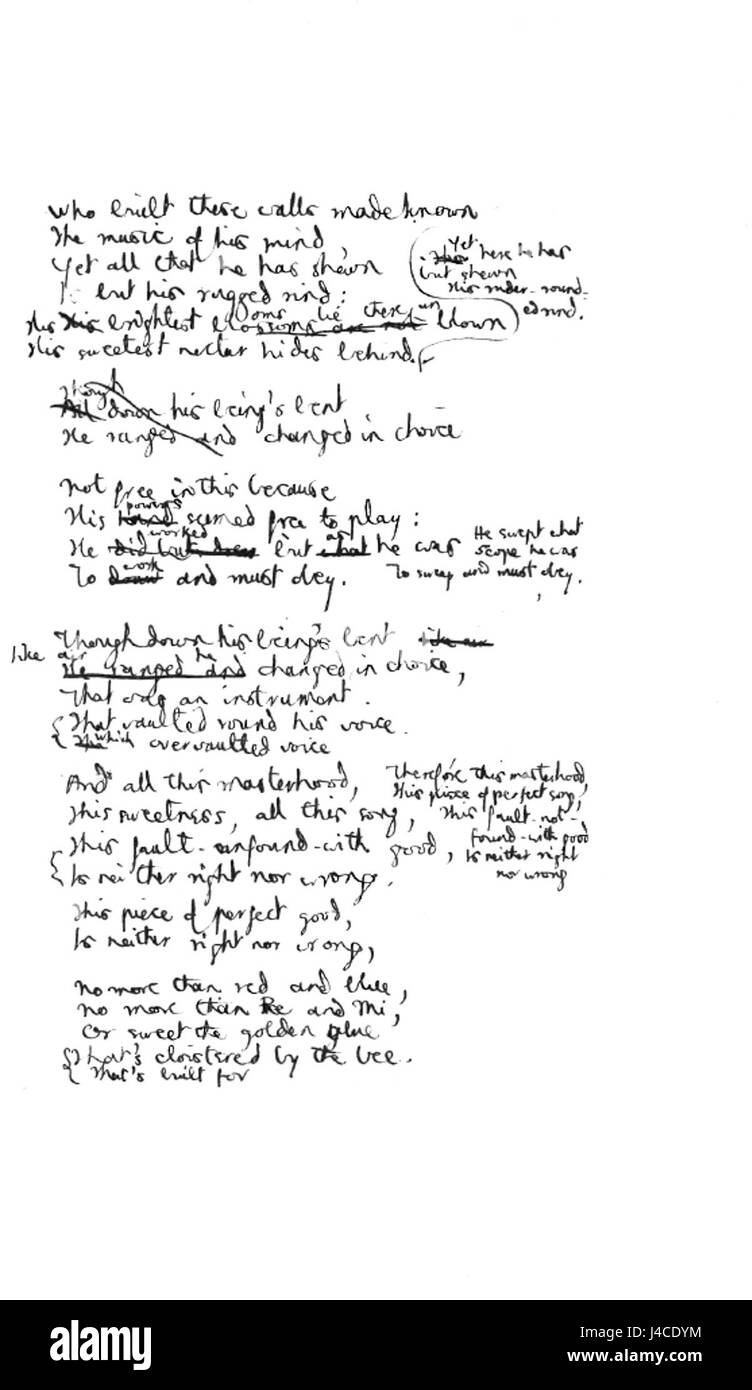 Who built these walls made known
The music of his mind,
Yet all that he has shewn
Is but his rugged rind:
His His brightest blossoms are not blown
ooms lie there un
His sweetest nectar hides behind.
Yet
The here he has
but shewn
His ruder-round-
ed rind.
Though
All down his being's bent
He ranged and changed in choice
Not free in this because
His powers seemed free to play:
worked
He did but draw but what he was
as
To work and must obey.
He swept what
scope he was
To sweep and must obey.
Though down his being's bent like air
Like air he
He ranged and changed in choice,
That was an instrument
{ That vaulted round his voice.
{ The which overvaulted voice
And all this masterhood,
This sweetness, all this song,
{ This fault-unfound-with good,
{ Is neither right nor wrong.
Therefore this masterhood,
This piece of perfect song,
This fault-not-
found-with good
Is neither right
nor wrong
This piece of perfect good,
Is neither right nor wrong,
No more than red and blue,
No more than Re and Mi,
Or sweet the golden glue
{ That's cloistered by the bee.
{ That's built for
alamy
Image ID: J4CDYM
www.alamy.com